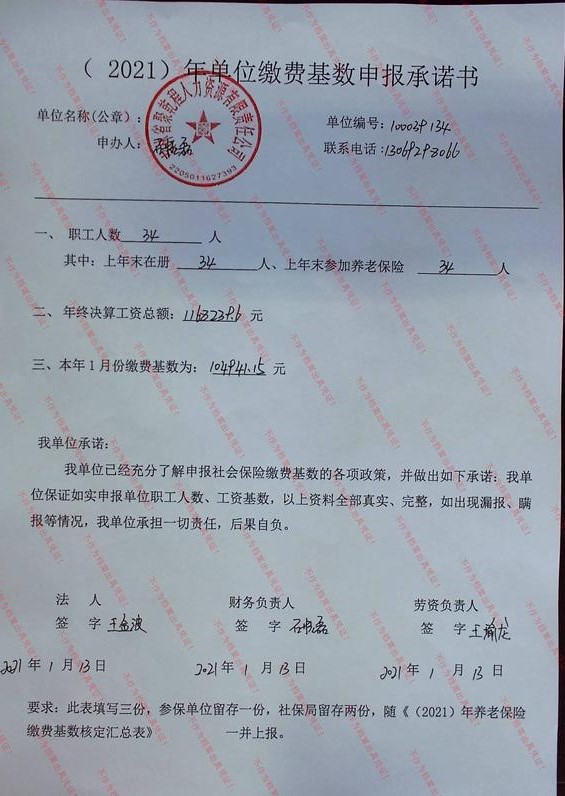 （2021）年单位缴费基数申报承诺书
单位名称(公章)：
单位编号：100039134
申办人：
联系电话：13069298066
2205011627393
一、 职工人数 34 人
其中：上年末在册 34 人、上年末参加养老保险 34 人
二、年终决算工资总额：1163239.6 元
三、本年1月份缴费基数为：104941.15 元
我单位承诺：
我单位已经充分了解申报社会保险缴费基数的各项政策，并做出如下承诺：我单
位保证如实申报单位职工人数、工资基数，以上资料全部真实、完整，如出现漏报、瞒
报等情况，我单位承担一切责任，后果自负。
法 人 财务负责人 劳资负责人
签 字 签 字 签 字
2021年 1 月 13 日 2021年 1 月 13 日 2021年 1 月 13 日
要求：此表填写三份，参保单位留存一份，社保局留存两份，随《（2021）年养老保险
缴费基数核定汇总表》 一并上报。